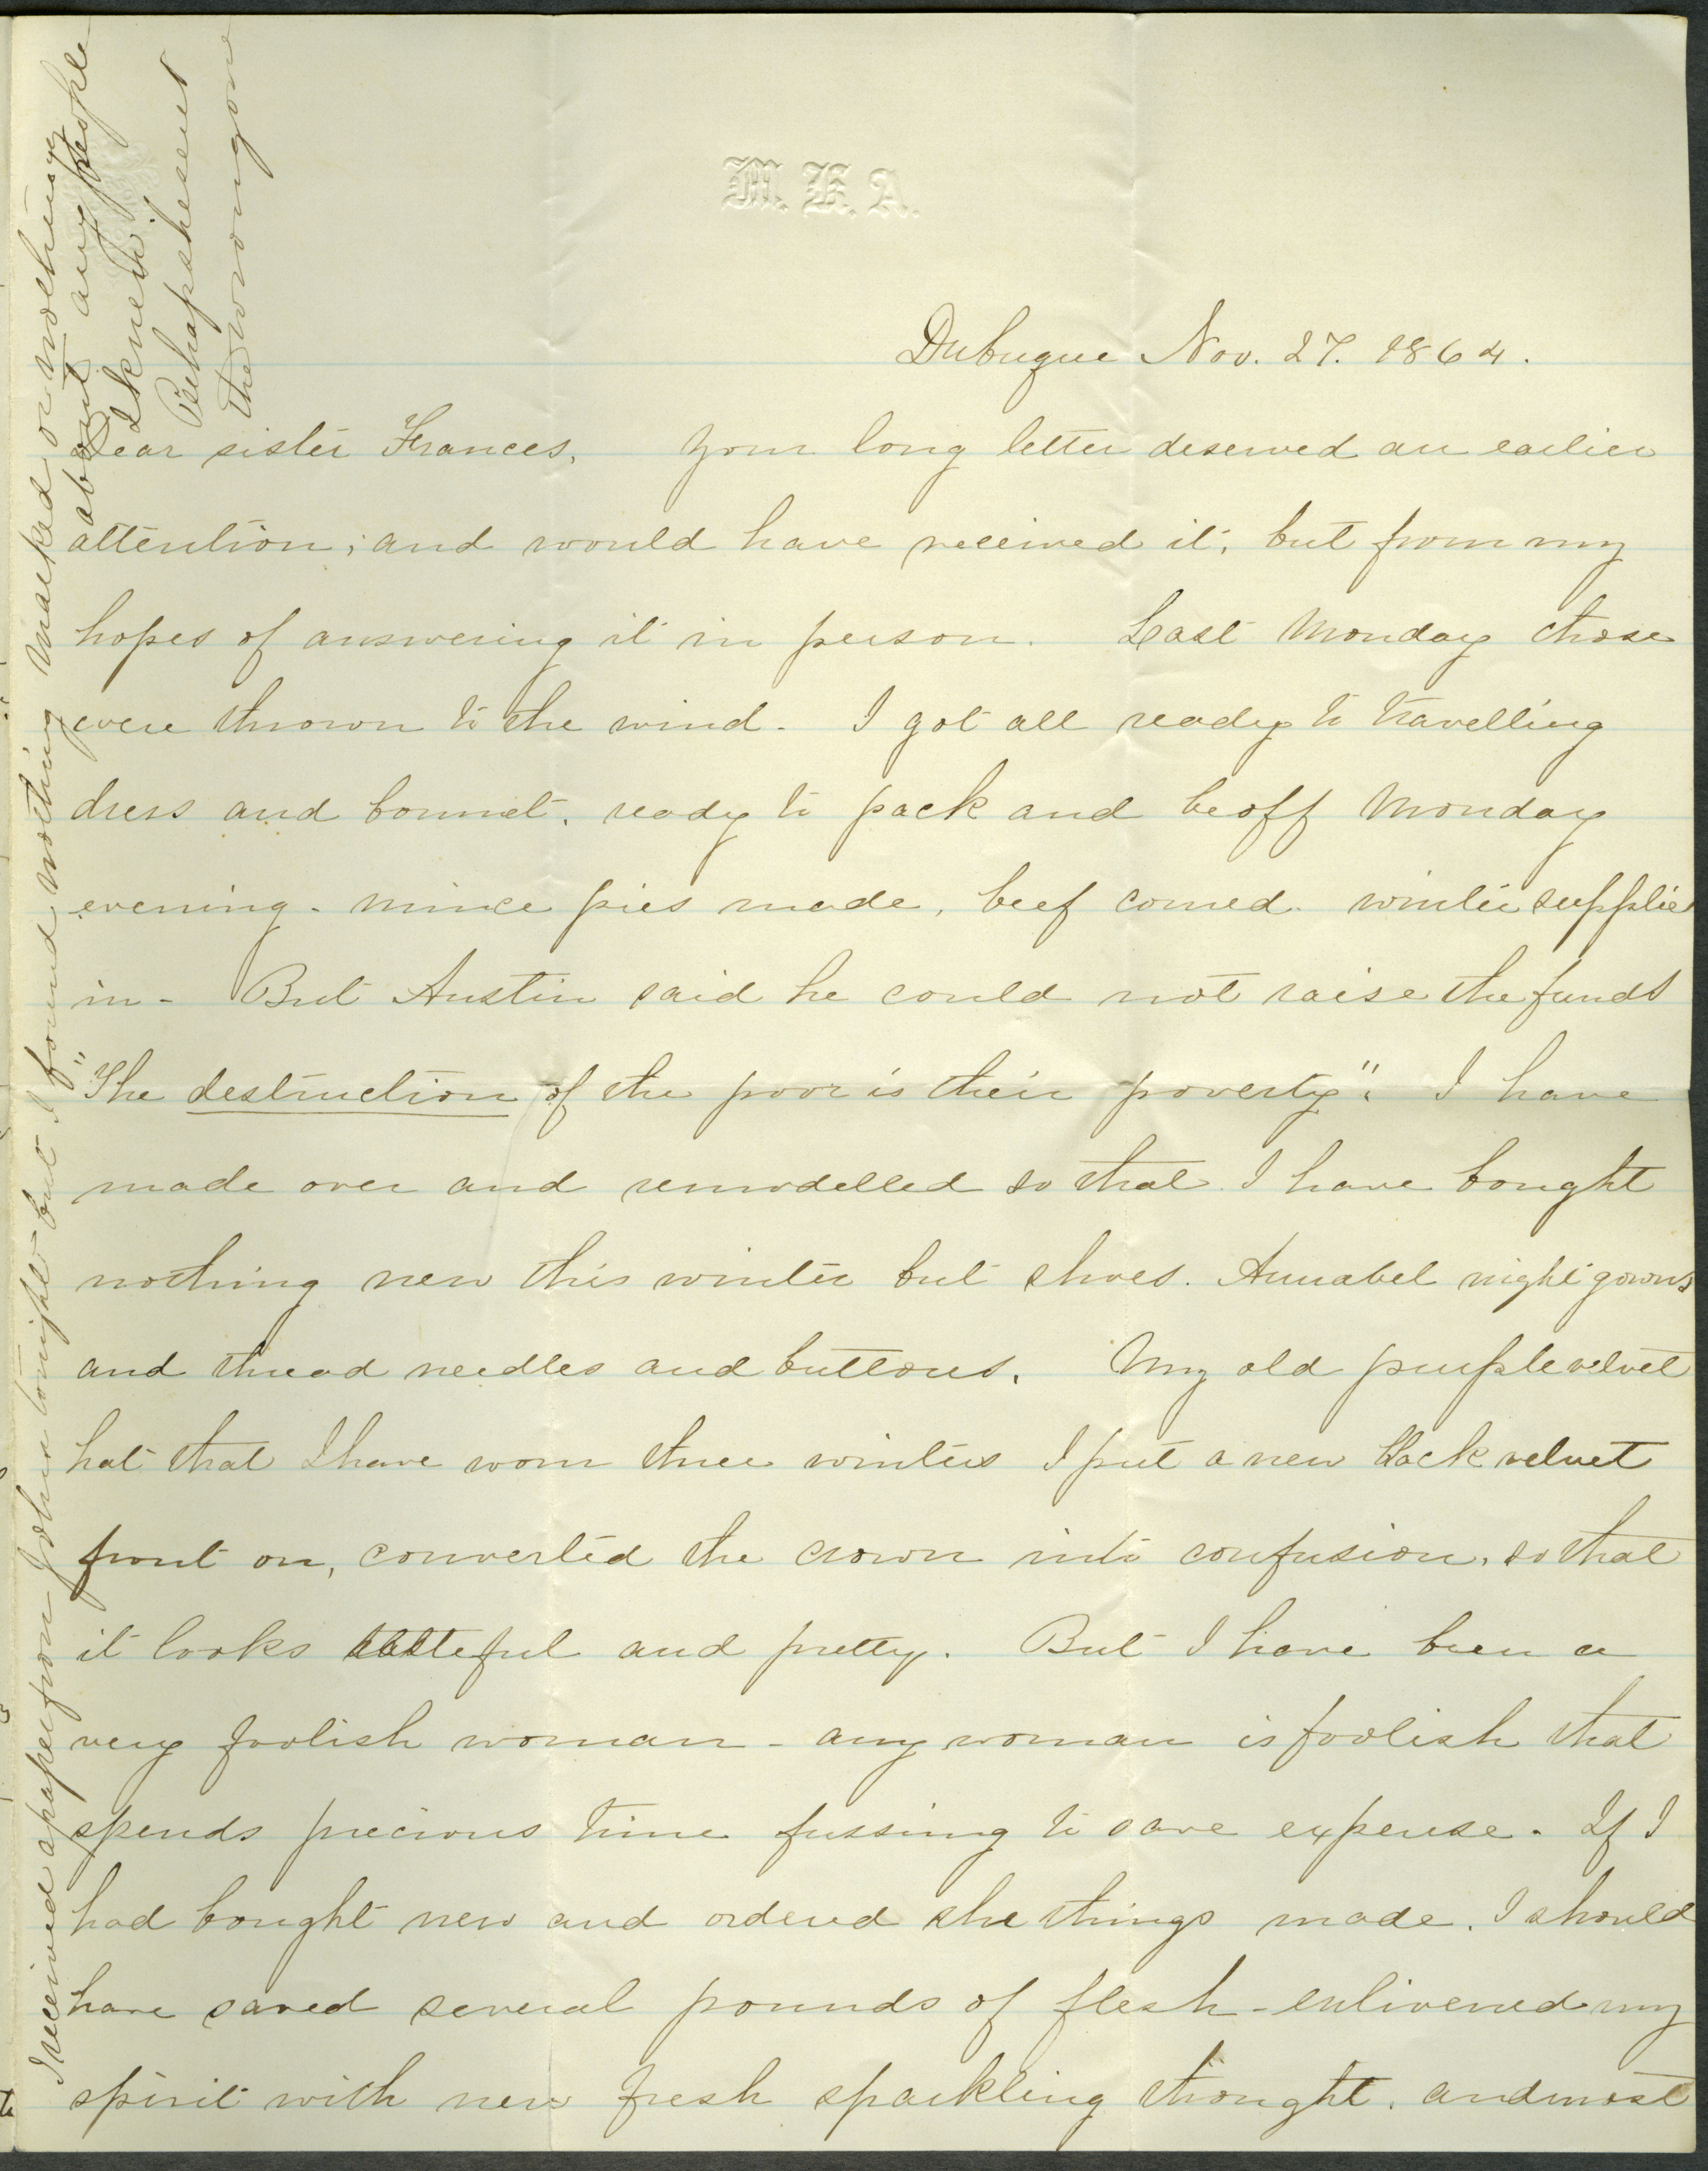 M. K. A.
Dubuque Nov. 27. 1864.
Dear sister Frances, Your long letter deserved an earlier
attention; and would have received it, but from my
hopes of answering it in person. Last Monday those
were thrown to the wind. I got all ready to travelling
dress and bonnet, ready to pack and be off Monday
evening - mince pies made, beef corned. winter supplies
in - But Austin said he could not raise the funds
"The destruction of the poor is their poverty". I have
made over and remodelled so that I have bought
nothing new this winter but shoes. Annabel night gowns
and thread needles and buttons. My old purple velvet
hat that I have worn three winters I put a new black velvet
front on, converted the crown into confusion, so that
it looks tasteful and pretty. But I have been a
very foolish woman - any woman is foolish that
spends precious time fussing to save expense. If I
had bought new and ordered the things made, I should
have saved several pounds of flesh - enlivened my
spirit with new fresh sparkling thought, and most
I received a paper from John tonight - but I found nothing marked or nothing
about any people
I knew.
Perhaps he sent
the wrong one